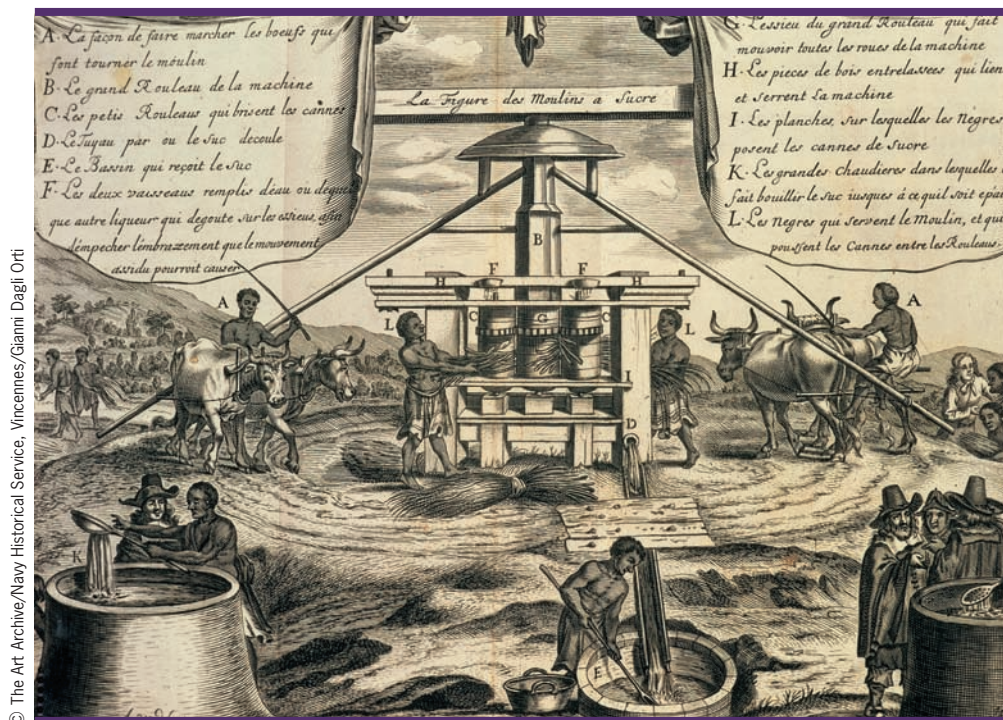 © The Art Archive/Navy Historical Service, Vincennes/Gianni Dagli Orti
A. La façon de faire marcher les bœufs qui
font tourner le moulin
B. Le grand Rouleau de la machine
C. Les petis Rouleaus qui brisent les cannes
D. Le Tuyau par ou le suc decoule
E. Le Bassin qui reçoit le suc
F. Les deux vaisseaus remplis d'eau ou de
que autre liqueur qui degoute sur les essieus, afin
d'empecher l'embrazement que le mouvement
assidu pourroit causer
La Figure des Moulins a Sucre
G. L'essieu du grand Rouleau qui fait
mouvoir toutes les roues de la machine
H. Les pieces de bois entrelassees qui
et serrent La machine
I. Les planches, sur lesquelles les Negres
posent les cannes de sucre
K. Les grandes chaudieres dans lesquelles
fait bouillir le suc iusques à ce quil soit
L. Les Negres qui servent le Moulin, et
poussent les Cannes entre les Rouleaus.
B
F
F
H
H
A
A
L
C
G
C
L
I
D
K
E